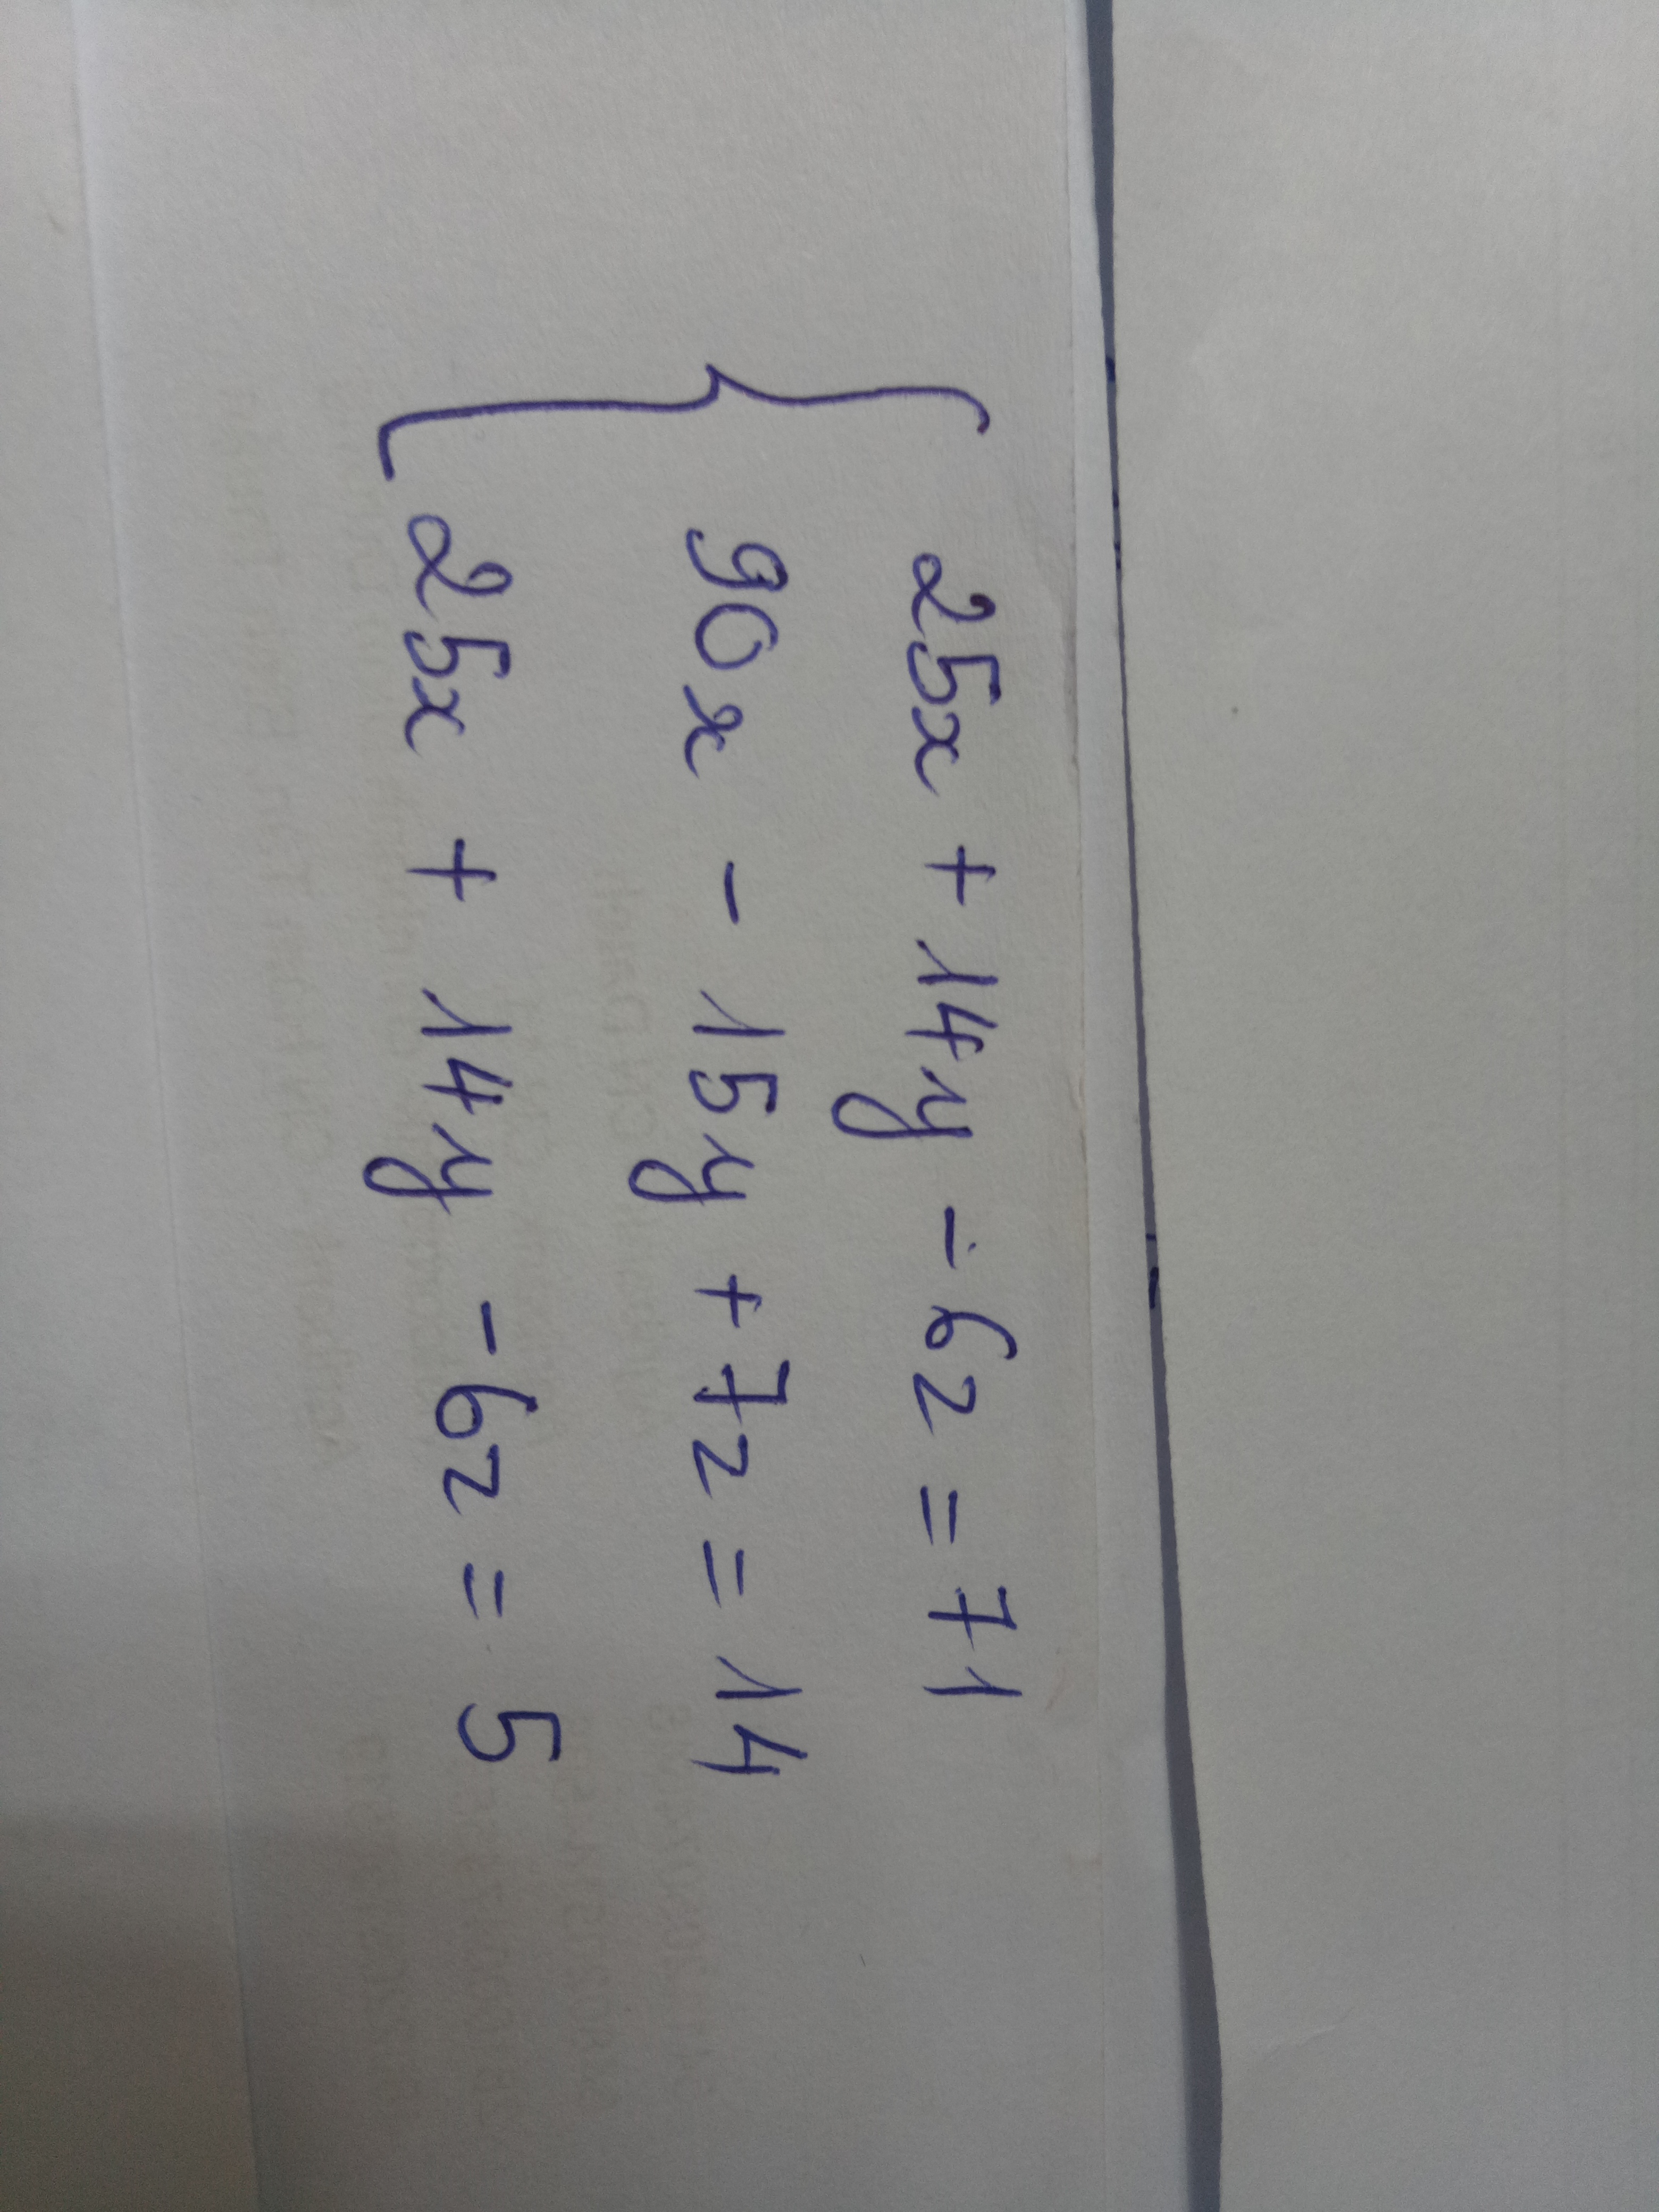 25x + 14y - 6z = 71
90x - 15y + 7z = 14
25x + 14y - 6z = 5